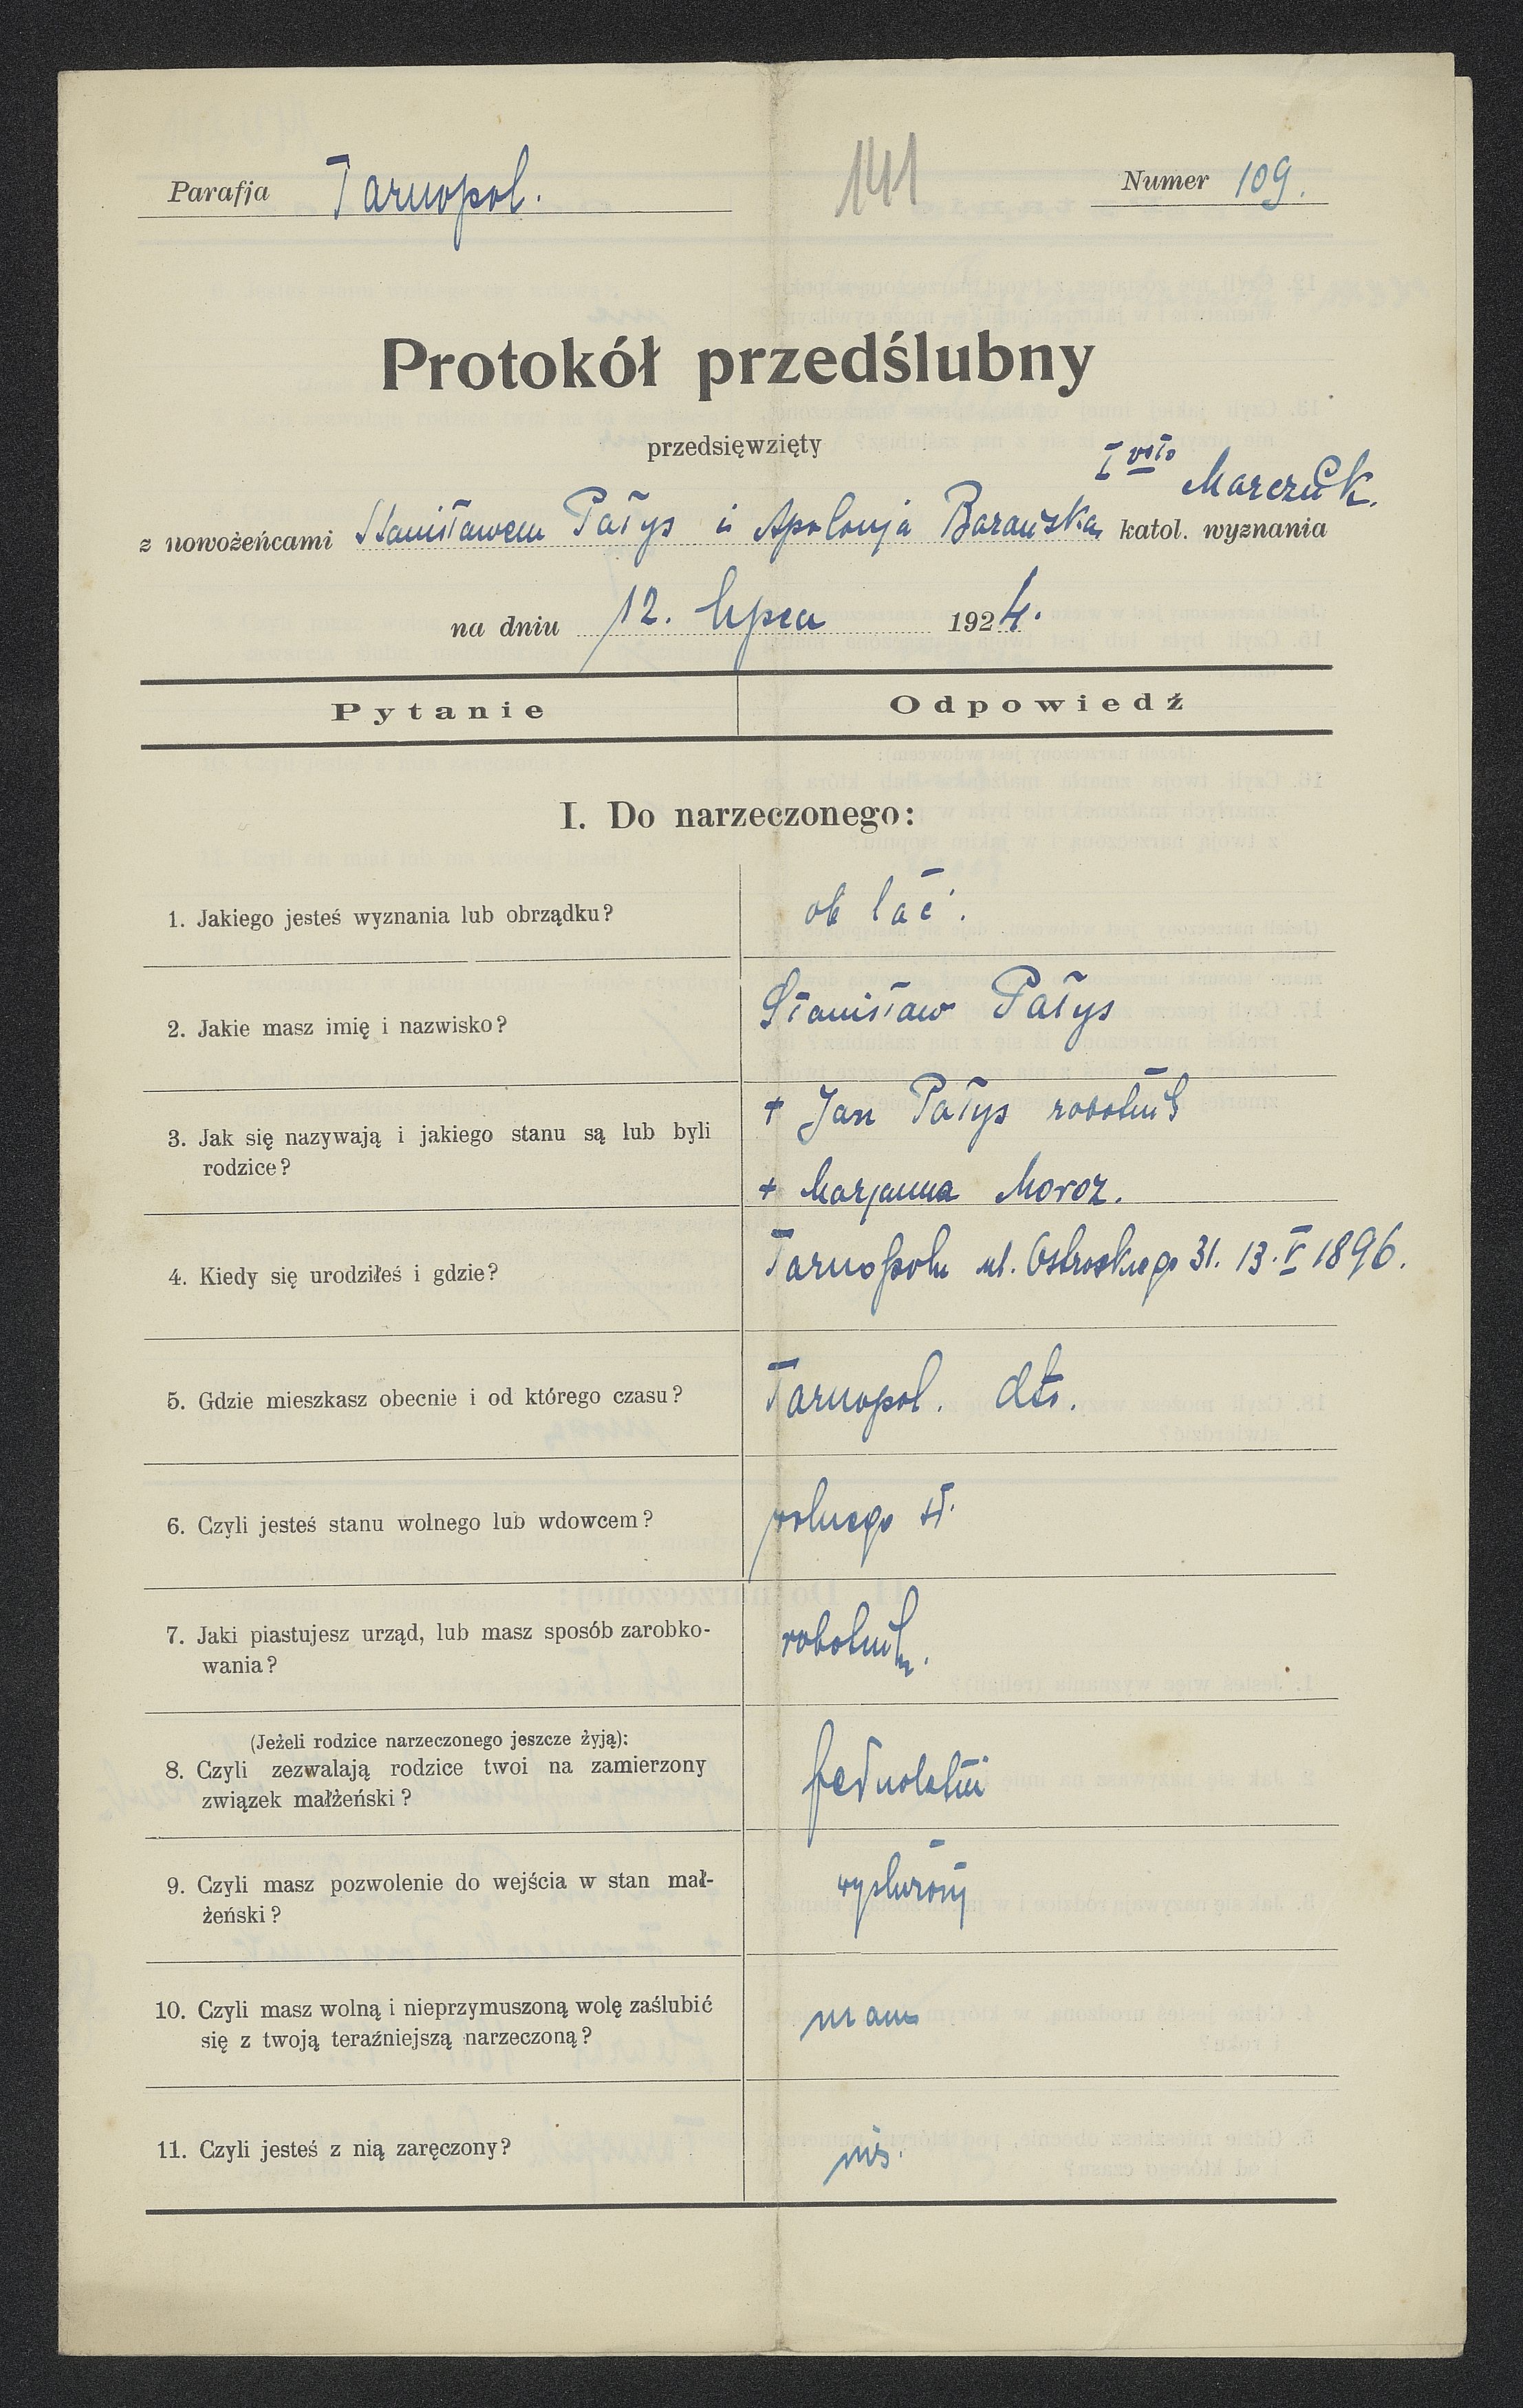 Parafja Tarnopol. 141 Numer 109.
Protokół przedślubny
przedsięwzięty
I voto Marczuk.
z nowożeńcami Stanisławem Pałys i Apolonja Barańska katol. wyznania
na dniu 12. lipca 1924.
Pytanie Odpowiedź
I. Do narzeczonego:
1. Jakiego jesteś wyznania lub obrządku? ob łać.
2. Jakie masz imię i nazwisko? Stanisław Pałys
+ Jan Pałys robotnik
3. Jak się nazywają i jakiego stanu są lub byli
rodzice?
+ Marjanna Moroz.
4. Kiedy się urodziłeś i gdzie? Tarnopolu ul. Ostroskiego 31. 13. V 1896.
5. Gdzie mieszkasz obecnie i od którego czasu? Tarnopol. dto.
6. Czyli jesteś stanu wolnego lub wdowcem? wolnego st.
7. Jaki piastujesz urząd, lub masz sposób zarobko-
wania? robotnik.
(Jeżeli rodzice narzeczonego jeszcze żyją):
8. Czyli zezwalają rodzice twoi na zamierzony
związek małżeński?
9. Czyli masz pozwolenie do wejścia w stan mał-
żeński? wysłużony
10. Czyli masz wolną i nieprzymuszoną wolę zaślubić
się z twoją teraźniejszą narzeczoną? mam
11. Czyli jesteś z nią zaręczony? nie.